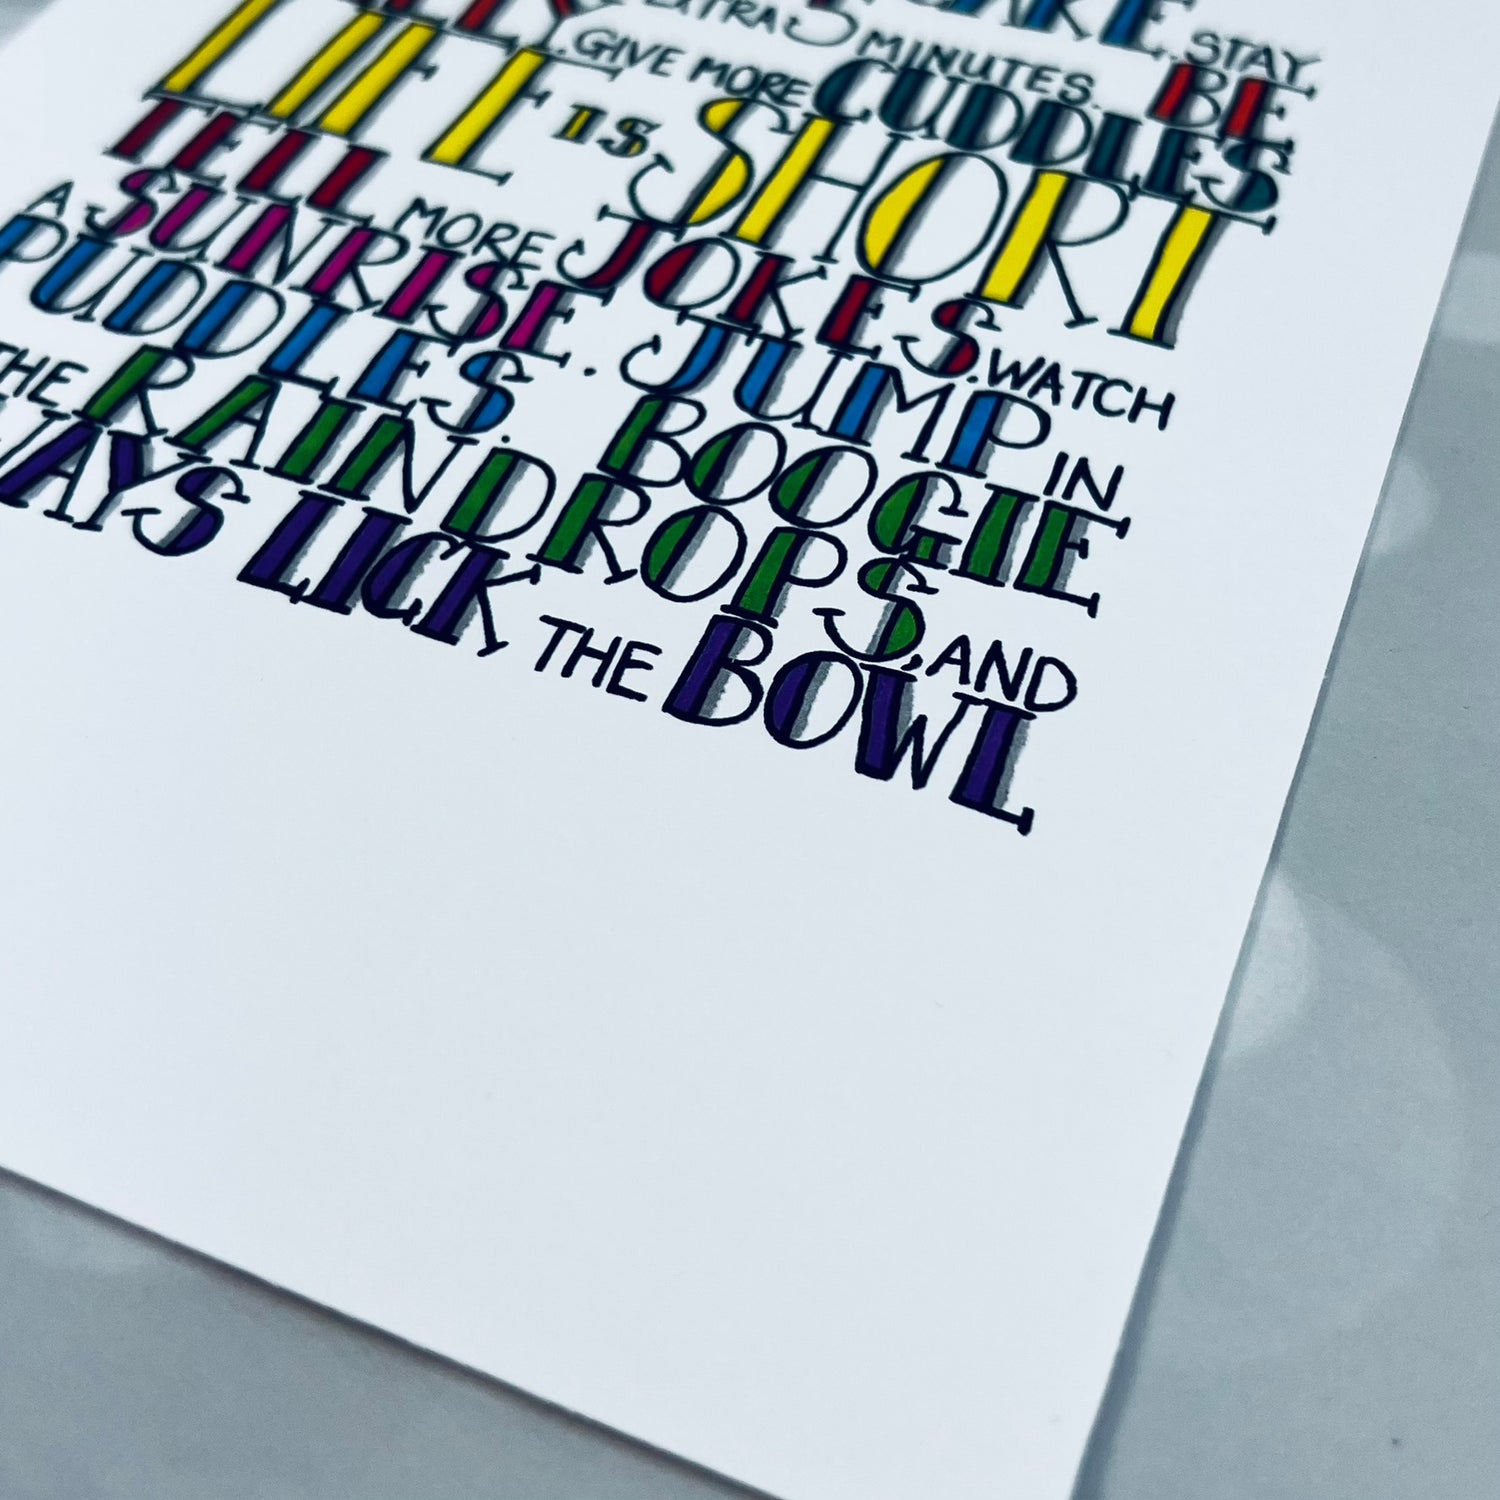 CAKE. STAY
EXTRA 5 MINUTES. BE
GIVE MORE CUDDLES
LIFE IS SHORT
TELL MORE JOKES. WATCH
A SUNRISE. JUMP IN
PUDDLES. BOOGIE
THE RAINDROPS, AND
WAYS LICK THE BOWL